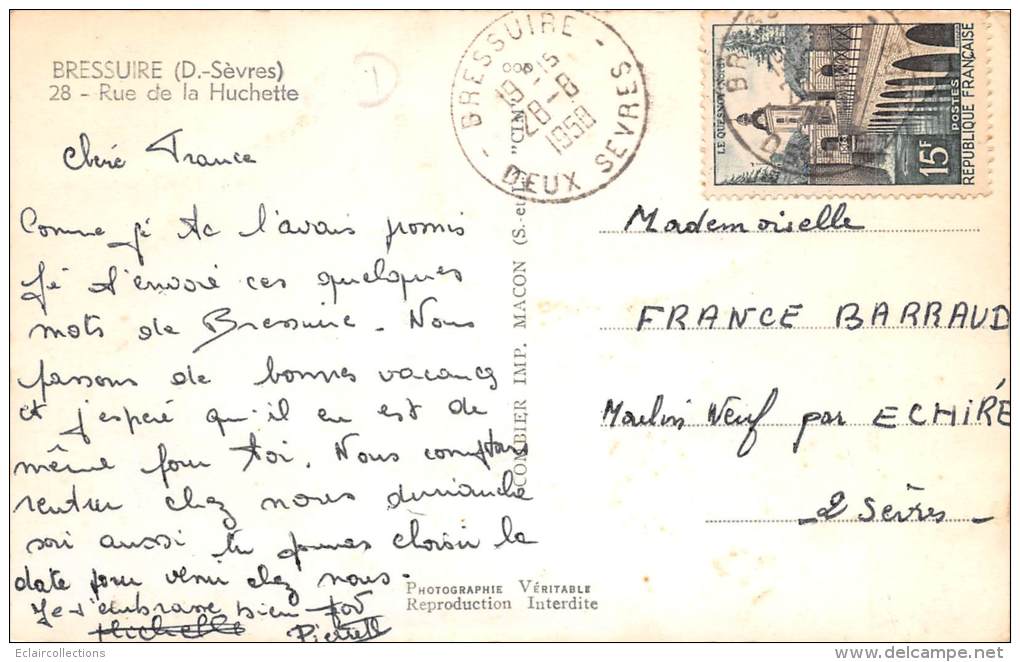 BRESSUIRE (D.-Sèvres)
28 - Rue de la Huchette
Chère France
Comme je te l'avais promis
je t'envoie ces quelques
mots de Bressuire. Nous
passons de bonnes vacances
et j'espère qu'il en est de
même pour toi. Nous comptons
rentrer chez nous dimanche
soir aussi tu pourras choisir la
date pour venir chez nous.
Je t'embrasse bien fort
Michelle
BRESSUIRE
19 H 15
28-8
1958
DEUX SEVRES
COMBIER IMP. MACON (S.-et-L.) "CIM"
LE QUESNOY (NORD)
15F
POSTES
REPUBLIQUE FRANÇAISE
Mademoiselle
FRANCE BARRAUD
Moulin Neuf par ECHIRÉ
2 Sèvres
PHOTOGRAPHIE VÉRITABLE
Reproduction Interdite
Eclaircollections
delcampe.net